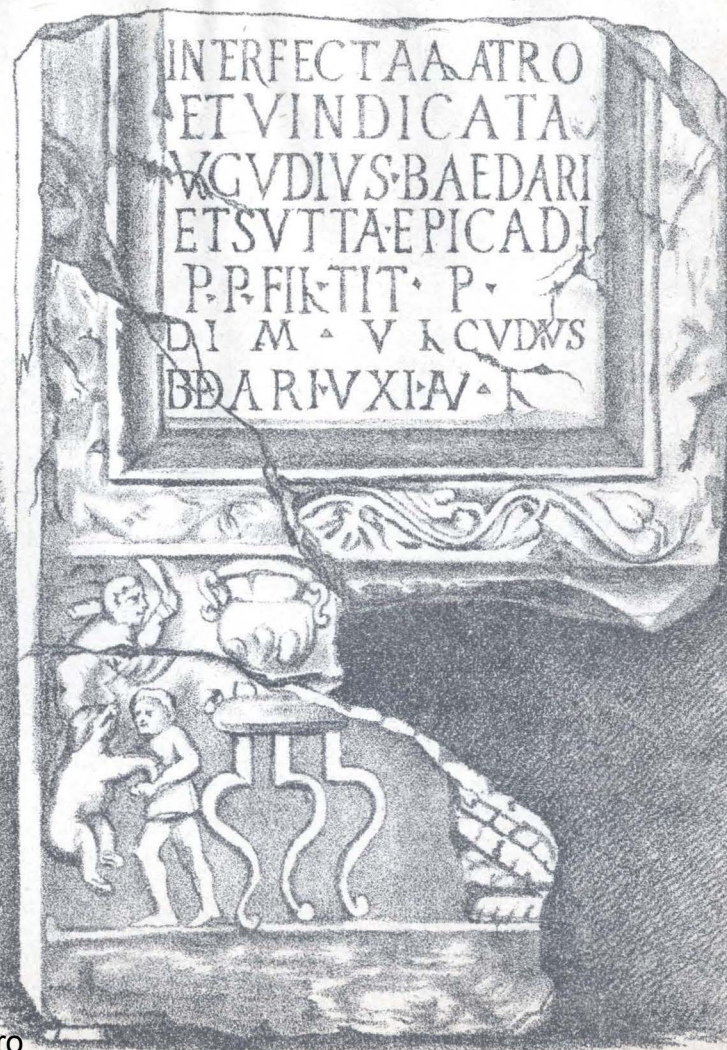 INTERFECTA A LATRO
ET VINDICATA
VLCVDIVS·BAEDARI
ET SVTTA·EPICADI
P·P·FIL·TIT· P·
DI M ▵ V L CVDIVS
BEDARI·VXI·AN ▵ L
ro